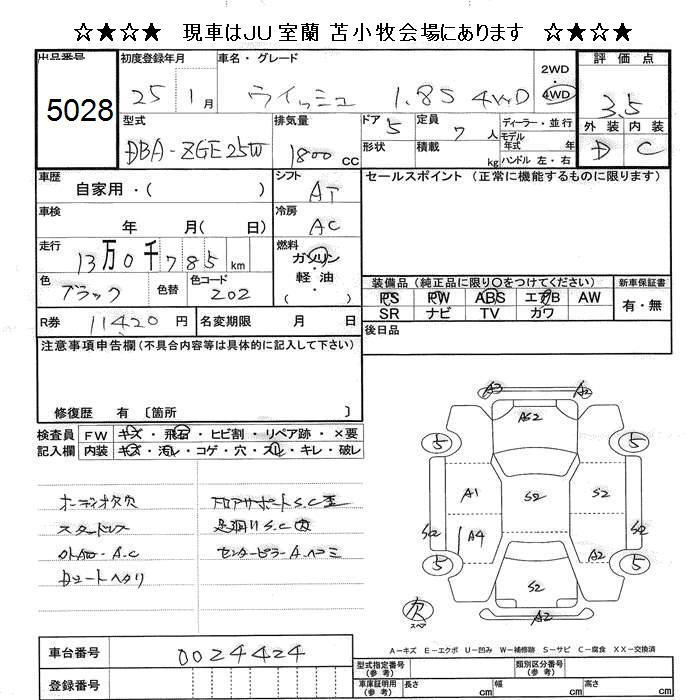 ☆★☆★ 現車はJU室蘭 苫小牧会場にあります ★☆★☆
出品番号 初度登録年月 車名・グレード 評価点
5028 25 1月 ウイッシュ 1.8S 4WD 2WD 4WD 3.5
型式 排気量 ドア 5 定員 7人 ディーラー・並行 外装 内装
DBA-ZGE25W 1800cc 形状 積載 kg モデル年式 年 ハンドル 左・右 D C
車歴 シフト セールスポイント (正常に機能するものに限ります)
自家用・( ) AT
車検 年 月( 日) 冷房 AC
走行 13万0千785km 燃料 ガソリン 軽油 ( )
色 ブラック 色替 色コード 202
装備品 (純正品に限り○をつけてください) 新車保証書
PS PW ABS エアB AW 有・無
SR ナビ TV カワ
R券 11420円 名変期限 月 日 後日品
注意事項申告欄(不具合内容等は具体的に記入して下さい)
修復歴 有 〔箇所 〕
検査員 FW キズ・飛石・ヒビ割・リペア跡・×要
記入欄 内装 キズ・汚レ・コゲ・穴・スレ・キレ・破レ
オーディオ欠穴 フロアサポートS.C
スタッドレス 足廻りS.C
A.C センターピラーA.ヘコミ
A3
AS2
5 5
A1 S2 S2
A4 A2
5 5
S2
A2
欠
スペア
A-キズ E-エクボ U-凹み W-補修跡 S-サビ C-腐食 XX-交換済
車台番号 0024424 型式指定番号(参考) 類別区分番号(参考)
登録番号 車庫証明用(参考) 長さ cm 幅 cm 高さ cm